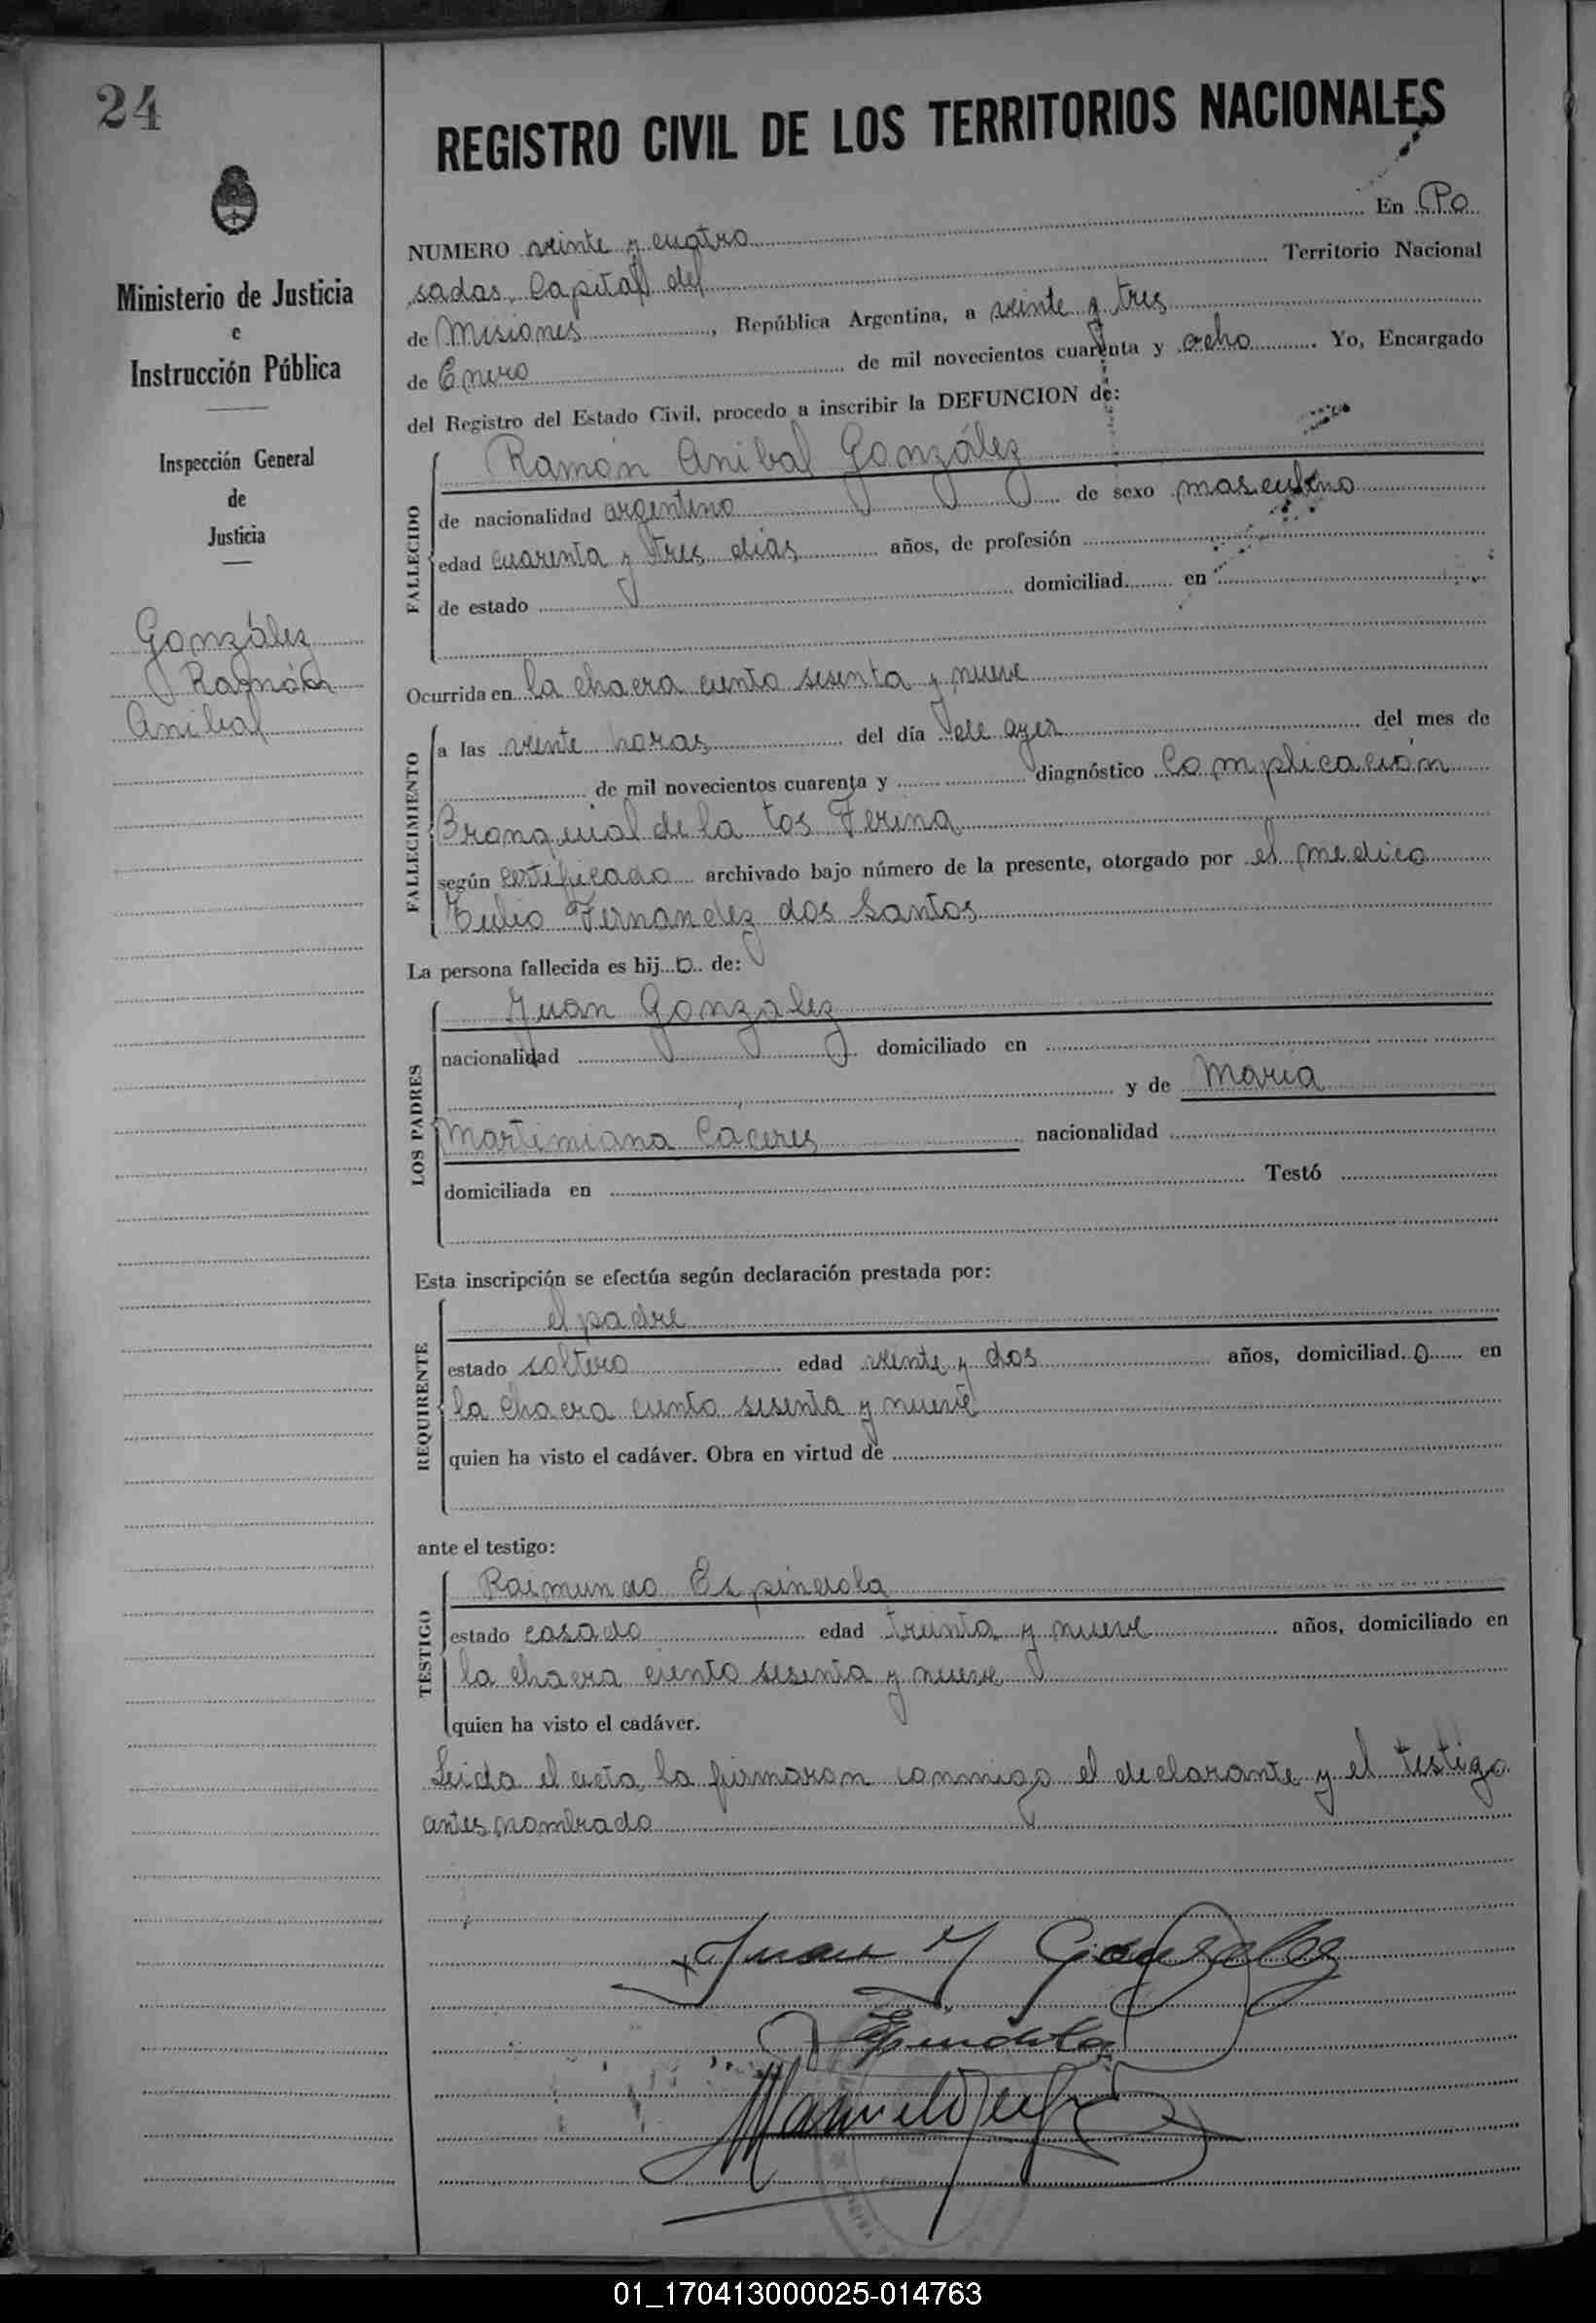 24
Ministerio de Justicia
e
Instrucción Pública
Inspección General
de
Justicia
González
Ramón
Anibal
REGISTRO CIVIL DE LOS TERRITORIOS NACIONALES
NUMERO veinte y cuatro En Po
sadas, Capital del Territorio Nacional
de Misiones, República Argentina, a veinte y tres
de Enero de mil novecientos cuarenta y ocho. Yo, Encargado
del Registro del Estado Civil, procedo a inscribir la DEFUNCION de:
FALLECIDO
Ramón Anibal González
de nacionalidad argentino de sexo masculino
edad cuarenta y tres dias años, de profesión
de estado domiciliad en
Ocurrida en la chacra ciento sesenta y nueve
FALLECIMIENTO
a las veinte horas del día de ayer del mes de
de mil novecientos cuarenta y diagnóstico Complicación
Bronquial de la tos Ferina
según certificado archivado bajo número de la presente, otorgado por el medico
Tulio Fernandez dos Santos
La persona fallecida es hijo de:
LOS PADRES
Juan Gonzalez
nacionalidad domiciliado en
y de Maria
Martimiana Caceres nacionalidad
domiciliada en Testó
Esta inscripción se efectúa según declaración prestada por:
REQUIRENTE
el padre
estado soltero edad veinte y dos años, domiciliado en
la chacra ciento sesenta y nueve
quien ha visto el cadáver. Obra en virtud de
ante el testigo:
TESTIGO
Raimundo Espindola
estado casado edad treinta y nueve años, domiciliado en
la chacra ciento sesenta y nueve
quien ha visto el cadáver.
Leida el acta, la firmaron conmigo el declarante y el testigo
antes nombrado
Juan Y Gonzalez
Espindola
01_170413000025-014763